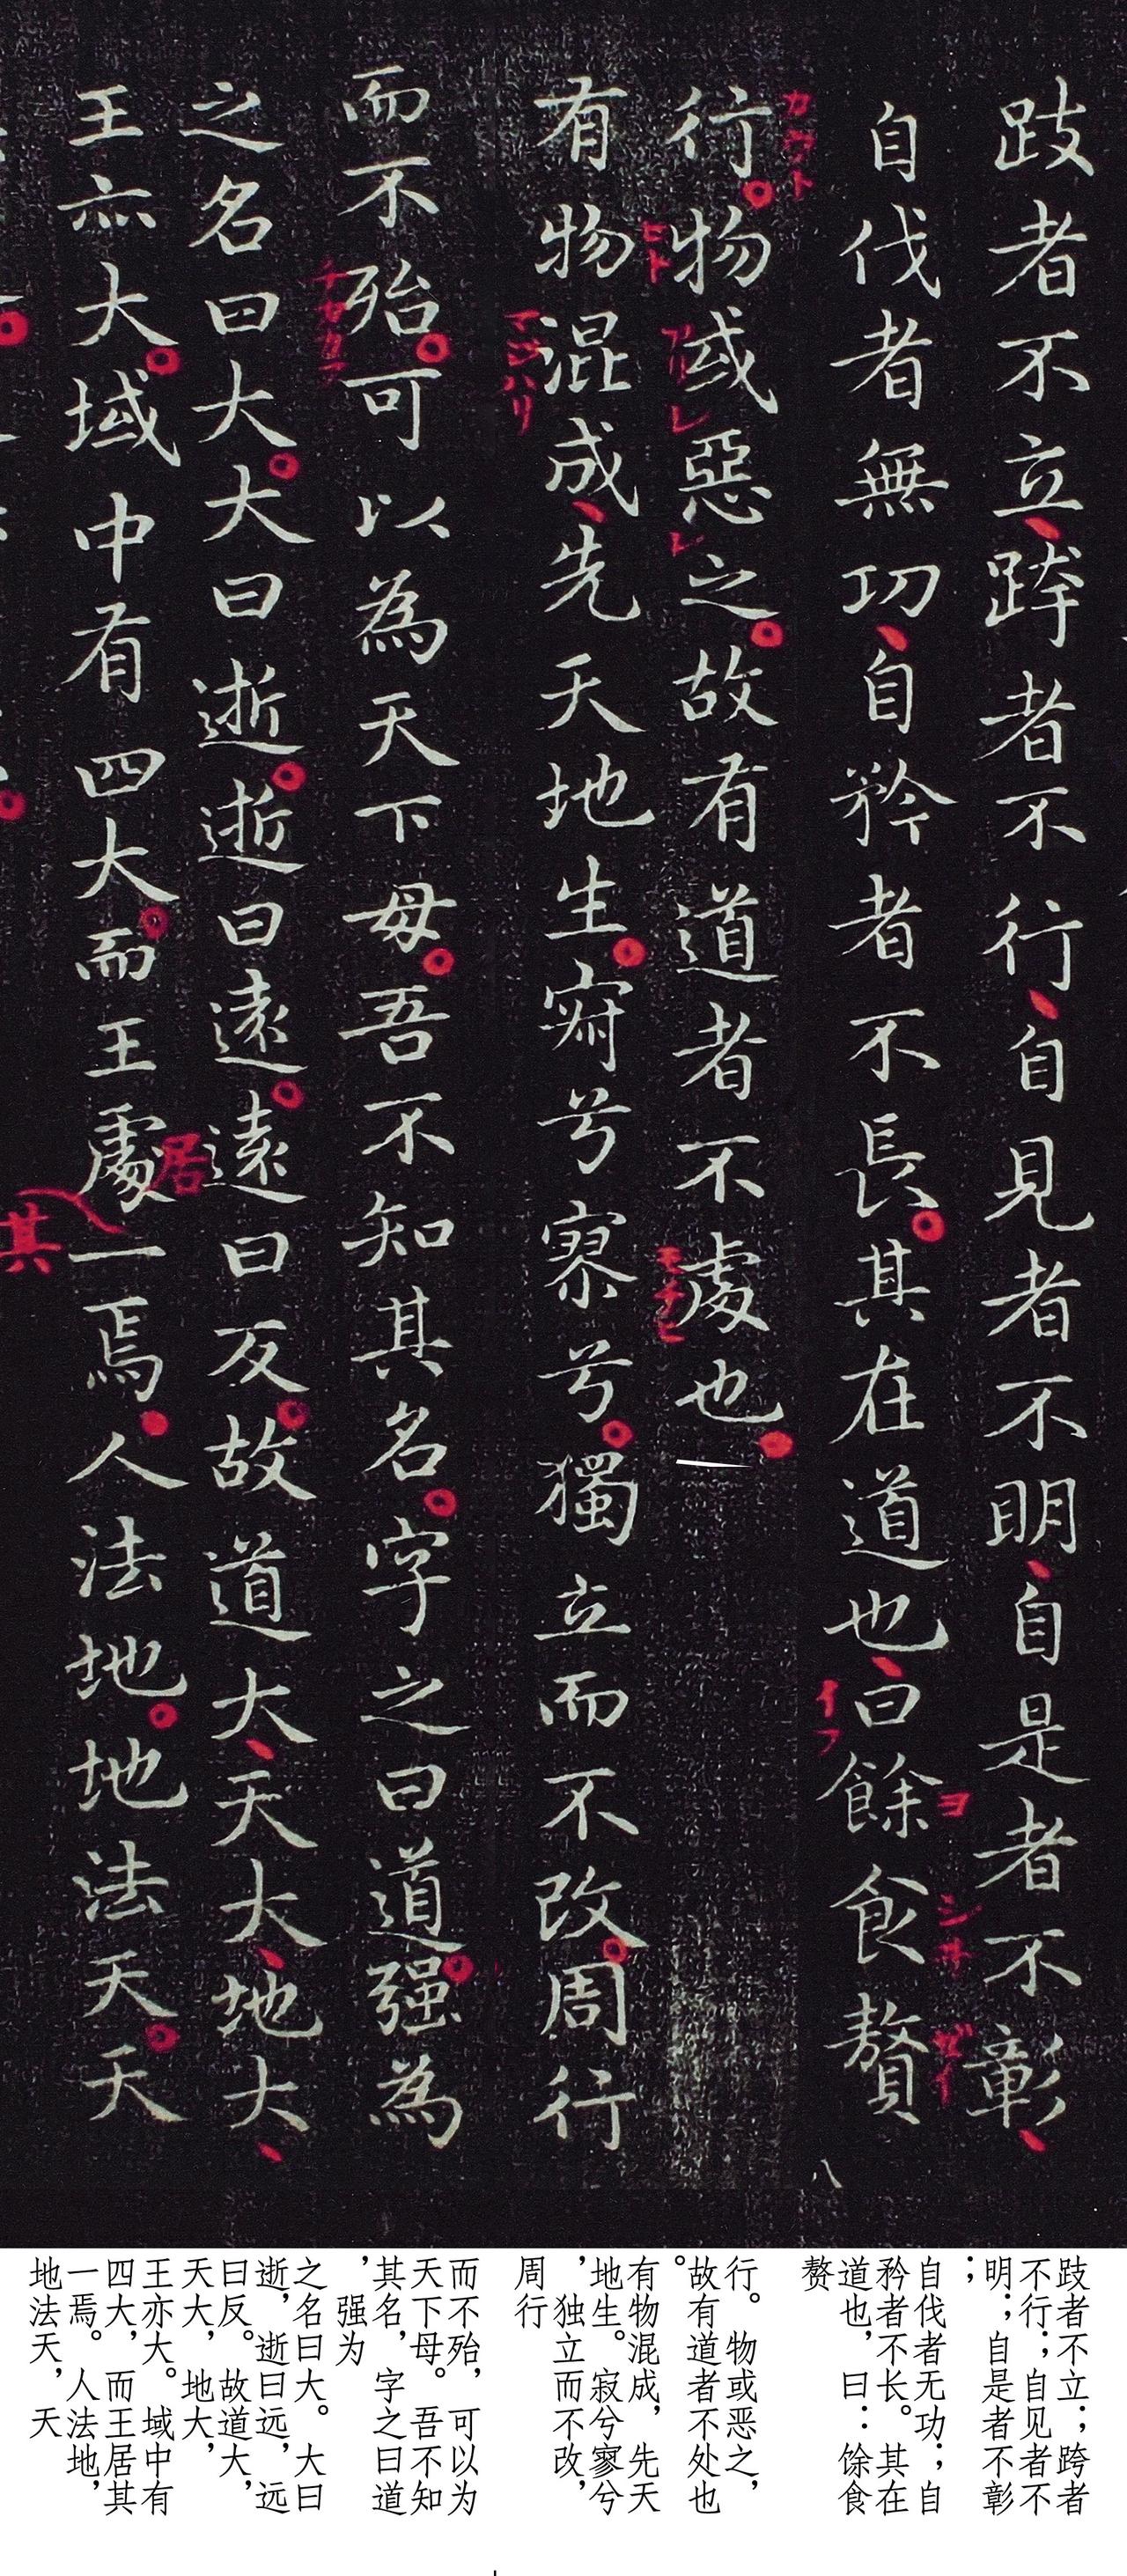 跂者不立跨者不行自見者不明自是者不彰
自伐者無功自矜者不長其在道也曰餘食贅
行物或惡之故有道者不處也
有物混成先天地生寂兮寥兮獨立而不改周行
而不殆可以為天下母吾不知其名字之曰道强為
之名曰大大曰逝逝曰遠遠曰反故道大天大地大
王亦大域中有四大而王處一焉人法地地法天天
居
其
跂者不立；跨者
不行；自见者不
明；，自是者不彰
；
自伐者无功；自
矜者不长。其在
道也，曰：馀食
赘
行。物或恶之，
故有道者不处也
。
有物混成，先天
地生。寂兮寥兮
，独立而不改，
周行
而不殆，可以为
天下母。吾不知
其名，字之曰道
，强为
之名曰大。大曰
逝，逝曰远，远
曰反。故道大，
天大，地大，
王亦大。域中有
四大，而王居其
一焉。人法地，
地法天，天